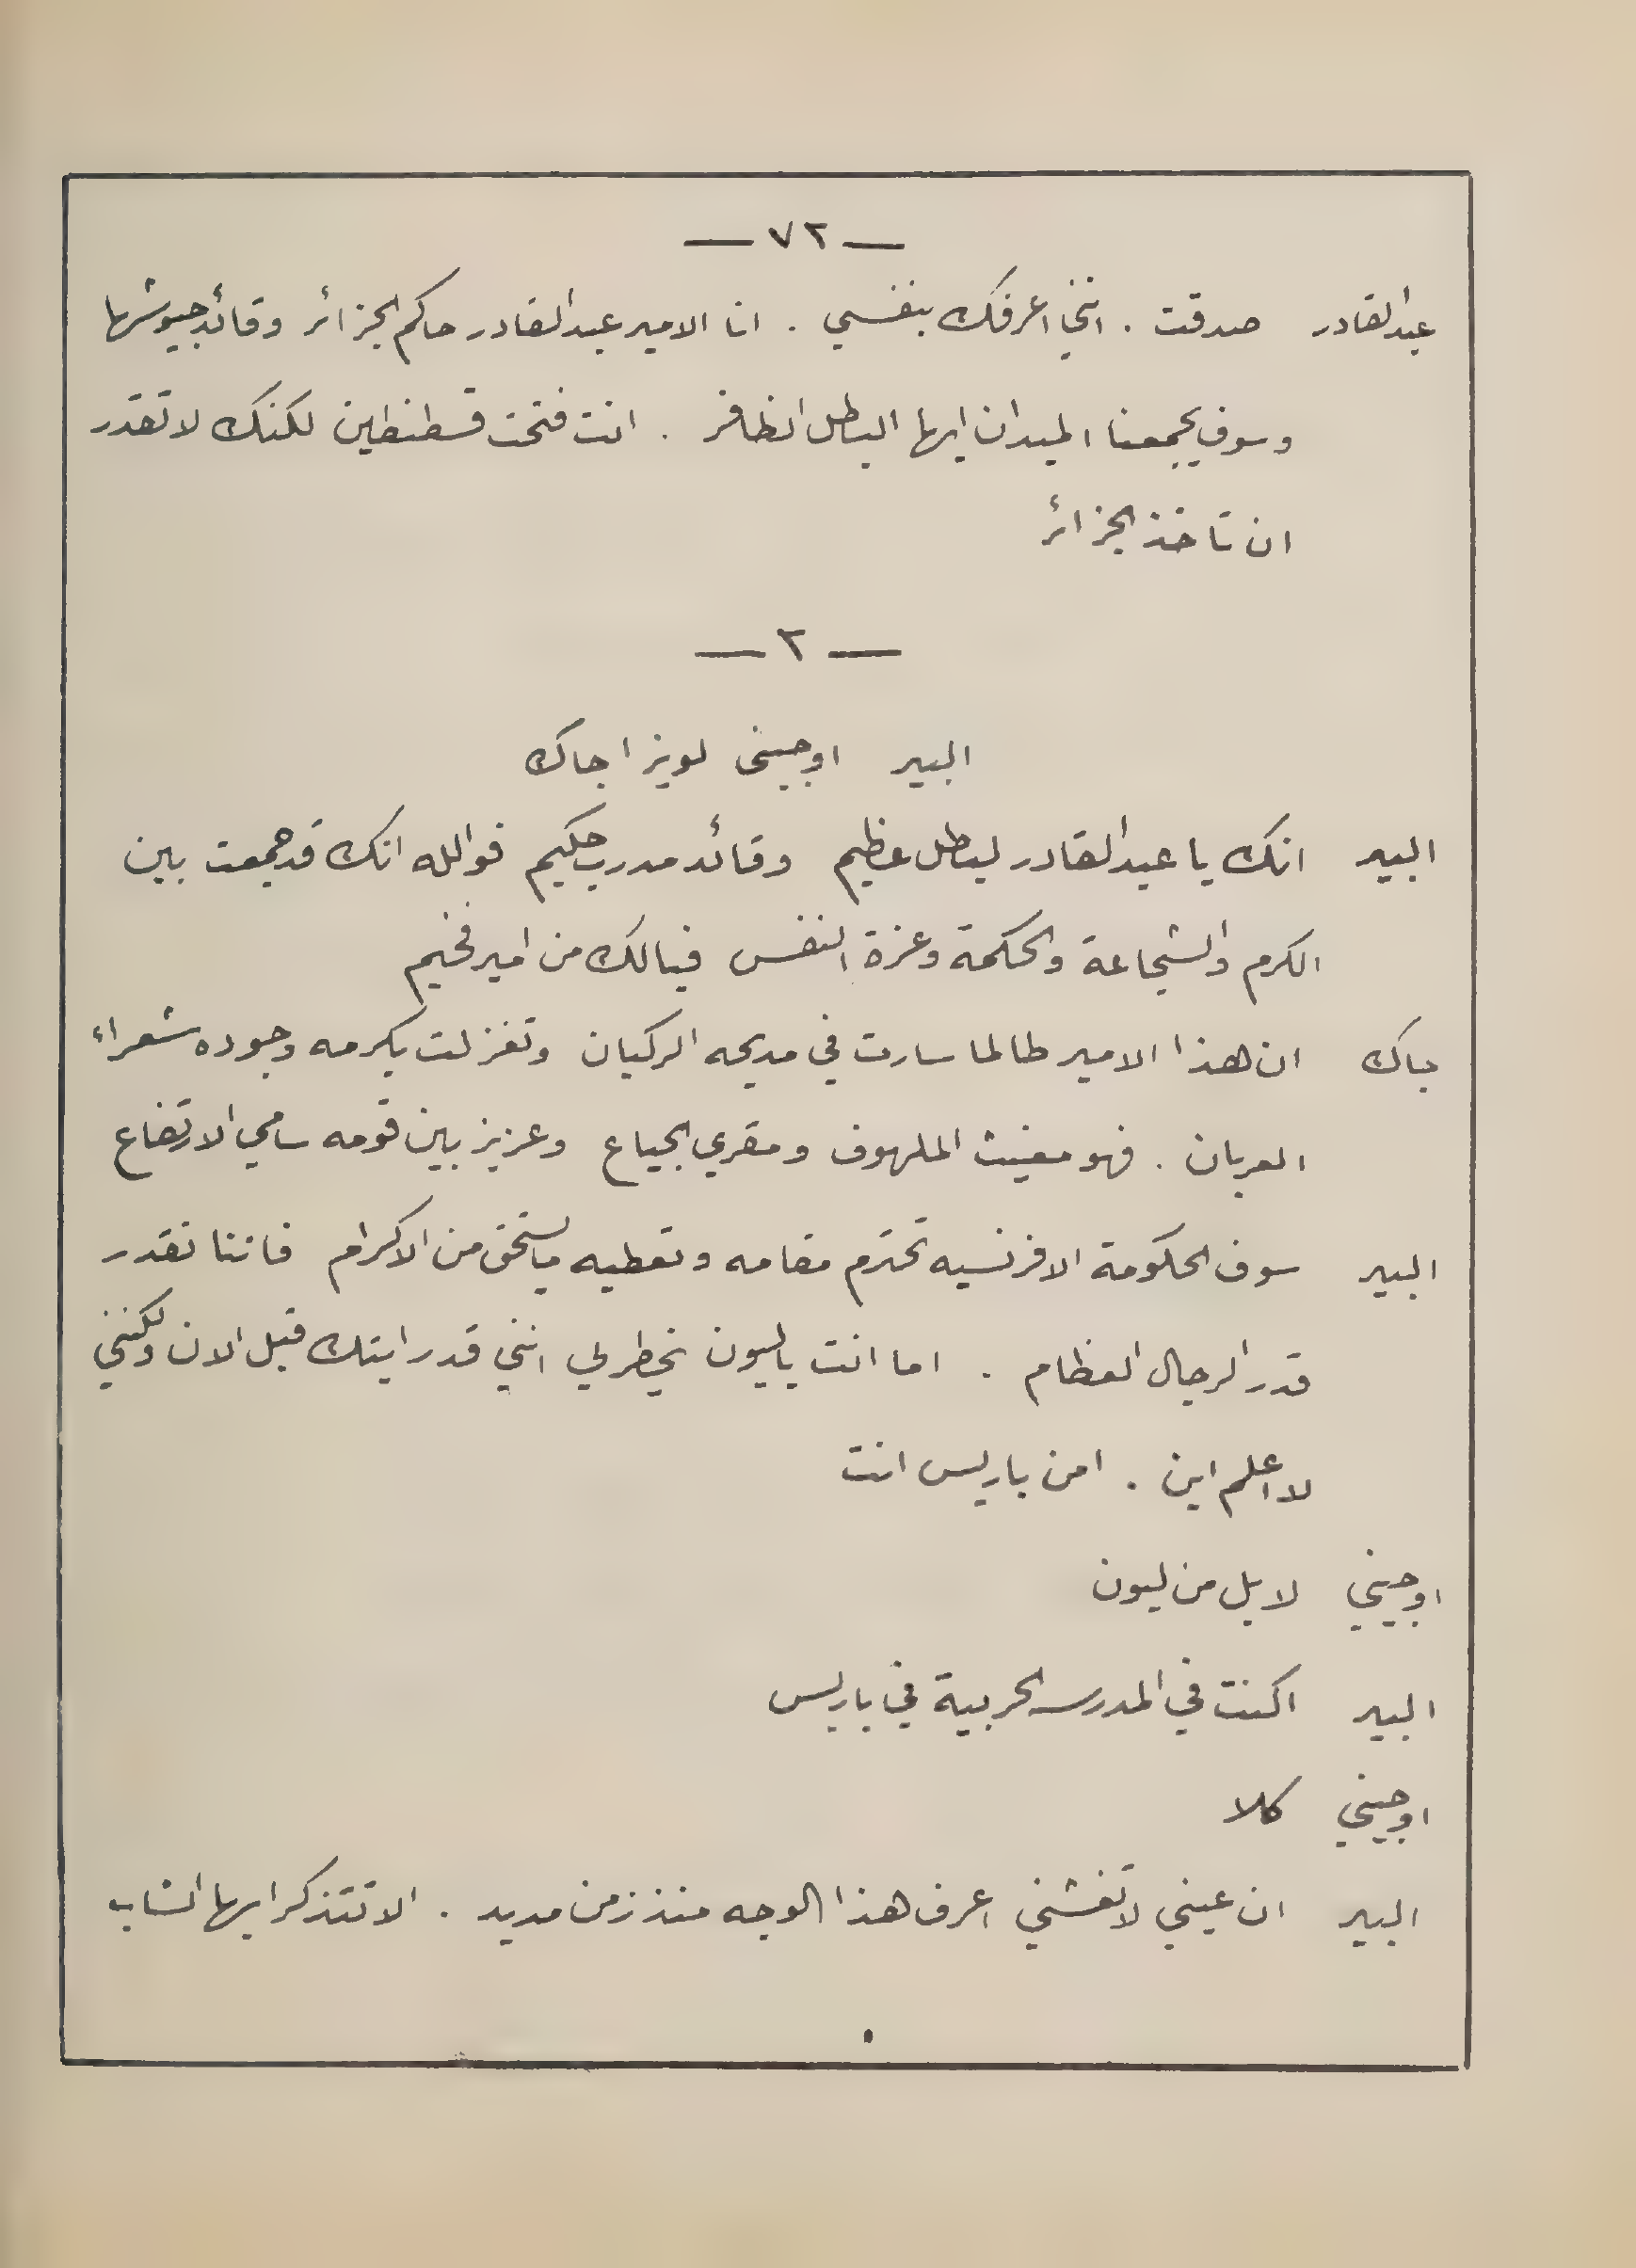 — ٧٢ —
عبدالقادر صدقت . انني اعرفك بنفسي . انا الامير عبدالقادر حاكم الجزائر وقائد جيوشها
وسوف يجمعنا الميدان ايها البطل الظافر . انت فتحت قسطنطين لكنك لا تقدر
ان تاخذ الجزائر
— ٢ —
البير اوجيني لويزا جاك
البير انك يا عبدالقادر لبطل عظيم وقائد مدرب حكيم فوالله انك قد جمعت بين
الكرم والشجاعة والحكمة وعزة النفس فيالك من امير فخيم
جاك ان هذا الامير طالما سارت في مديحه الركبان وتغزلت بكرمه وجوده شعراء
العربان . فهو مغيث الملهوف ومقري الجياع وعزيز بين قومه سامي الارتفاع
البير سوف الحكومة الافرنسيه تحترم مقامه وتعطيه ما يستحق من الاكرام فاننا نقدر
قدر الرجال العظام . اما انت ياليون يخطر لي انني قد رايتك قبل الان ولكنني
لا اعلم اين . امن باريس انت
اوجيني لا بل من ليون
البير اكنت في المدرسه الحربية في باريس
اوجيني كلا
البير ان عيني لا تغشني اعرف هذا الوجه منذ زمن مديد . الا تتذكر ايها الشاب